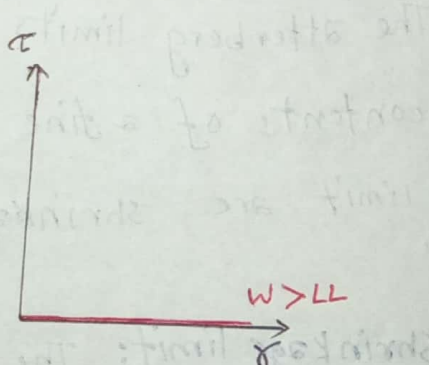 τ
W > LL
γ